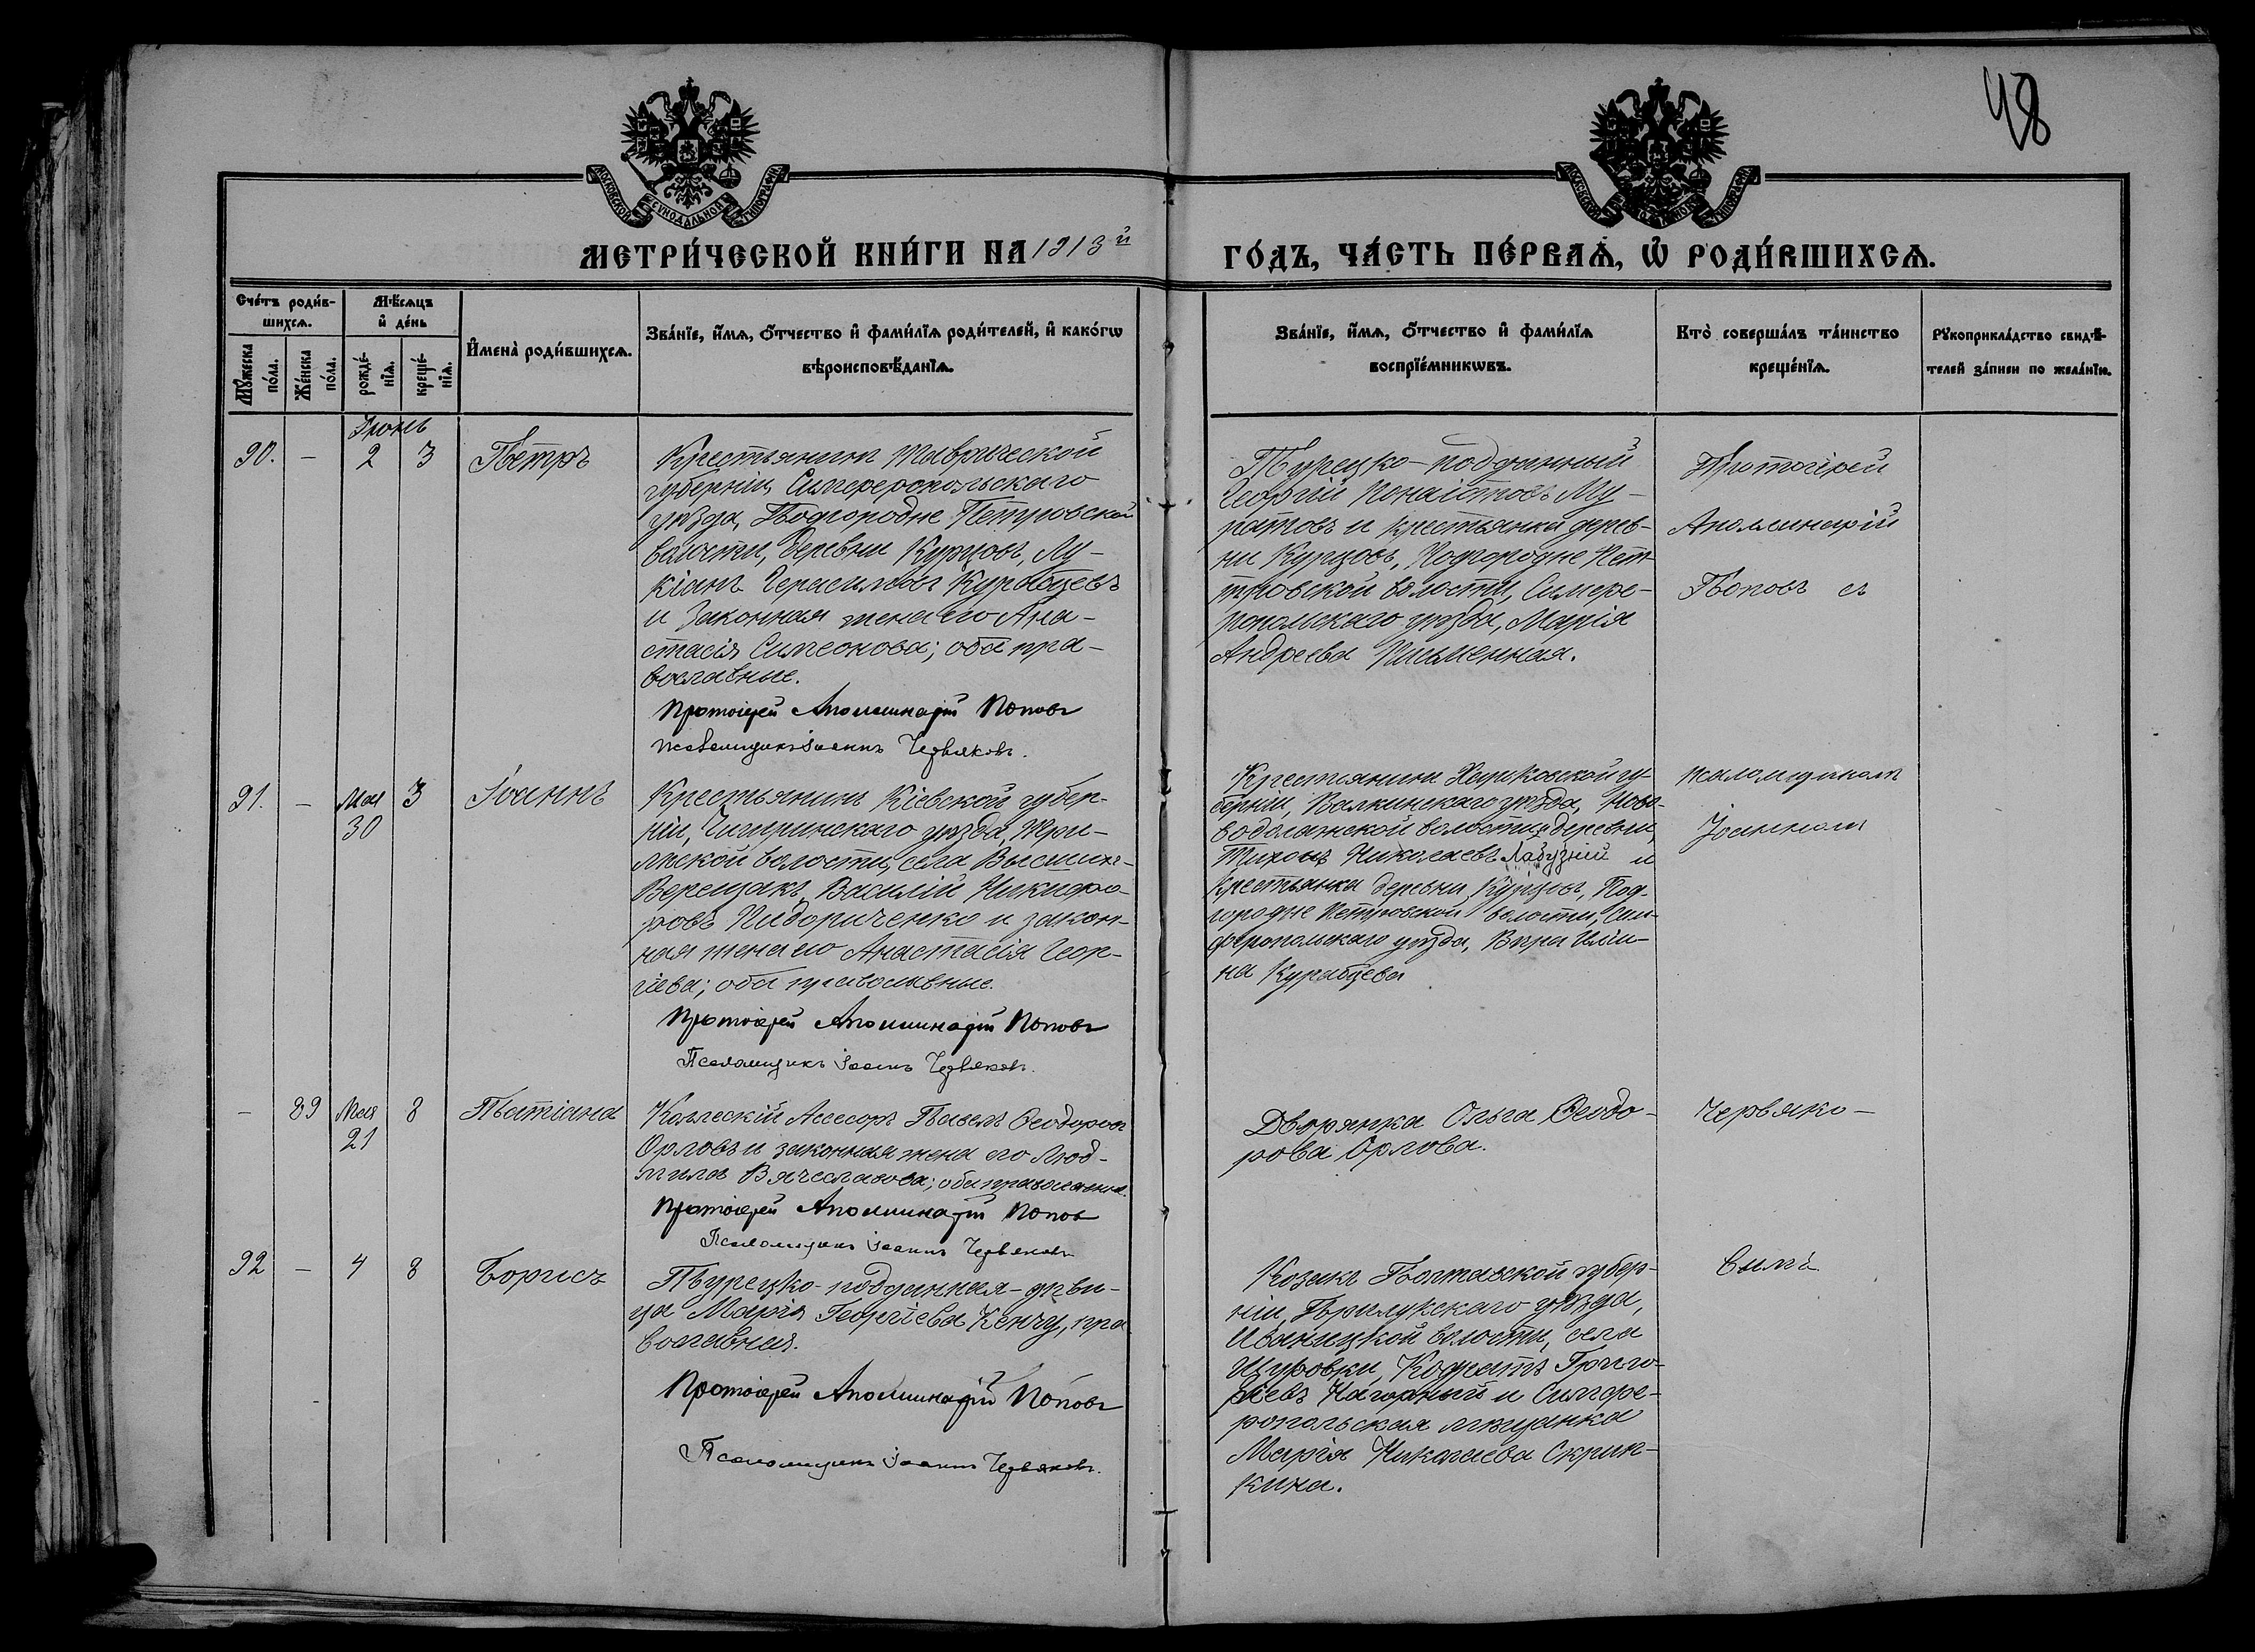 48
МОСКОВСКОЙ СѴНОДАЛЬНОЙ ТИПОГРАФІИ
МОСКОВСКОЙ СѴНОДАЛЬНОЙ ТИПОГРАФІИ
МЕТРИ́ЧЕСКОЙ КНИ́ГИ НА 1913й
ГО́ДЪ, ЧА́СТЬ ПЕ́РВАѦ, Ѿ РОДИ́ВШИХСѦ.
Сче́тъ роди́в-
шихсѧ.
Мѣ́сѧцъ
и҆ де́нь
Му́жеска
по́ла.
Же́нска
по́ла.
рожде́-
нїѧ.
креще́-
нїѧ.
И҆мена̀ роди́вшихсѧ.
Зва́нїе, и҆́мѧ, ѻ҆́тчество и҆ фами́лїѧ роди́телей, и҆ како́гѡ
вѣроисповѣ́данїѧ.
Зва́нїе, и҆́мѧ, ѻ҆́тчество и҆ фами́лїѧ
воспрїе́мникѡвъ.
Кто̀ соверша́лъ та́инство
креще́нїѧ.
Рꙋкоприкла́дство свидѣ́-
телей за́писи по жела́нїю.
Іюнь
90. – 2 3 Петръ
Крестьянинъ Таврической
губерніи, Симферопольскаго
уѣзда, Подгородне Петровской
волости, деревни Курцовъ, Лу-
кіанъ Герасимовъ Курабцевъ
и законная жена его Ана-
стасія Симеонова; оба пра-
вославные.
Протоіерей Аполлинарій Поповъ
Псаломщикъ Іоаннъ Червяковъ.
Турецко-подданный
Георгій Му-
ратовъ и крестьянка дерев-
ни Курцовъ, Подгородне Пет-
тровской волости, Симфе-
ропольскаго уѣзда, Марія
Андреева Письменная.
Протоіерей
Аполлинарій
Поповъ съ
91. – Мая 30 3 Іоаннъ
Крестьянинъ Кіевской губер-
ніи, Чигиринскаго уѣзда,
волости, села
Верещакъ, Василій Никифо-
ровъ Пидориченко и закон-
ная жена его Анастасія Геор-
гіева; оба православные.
Протоіерей Аполлинарій Поповъ
Псаломщикъ Іоаннъ Червяковъ.
Крестьянинъ Харьковской гу-
берніи, Валкинскаго уѣзда, Ново-
водолажской волости и деревни,
Тихонъ Николаевъ Лабузній и
крестьянка деревни Курцовъ, Под-
городне Петровской волости, Сим-
феропольскаго уѣзда, Вѣра Ильи-
на Курабцева
псаломщикомъ
Іоанномъ
– 89 Мая 21 8 Татіана
Коллескій Ассесоръ Павелъ Ѳеодоровъ
Орловъ и законная жена его Люд-
мила Вячеславова; оба православные.
Протоіерей Аполлинарій Поповъ
Псаломщикъ Іоаннъ Червяковъ
Дворянка Ольга Ѳеодо-
рова Орлова.
Червяко-
92 – 4 8 Борисъ
Турецко-подданная-дѣви-
ца Марія Георгіева Кенчу, пра
вославная.
Протоіерей Аполлинарій Поповъ
Псаломщикъ Іоаннъ Червяковъ.
Козакъ Полтавской губер-
ніи, Прилукскаго уѣзда,
Иваницкой волости, села
Щуровки, Кодратъ Григо-
ріевъ Нагорный и Симфе-
ропольская мѣщанка
Марія Николаева Скрип-
кина.
вымъ